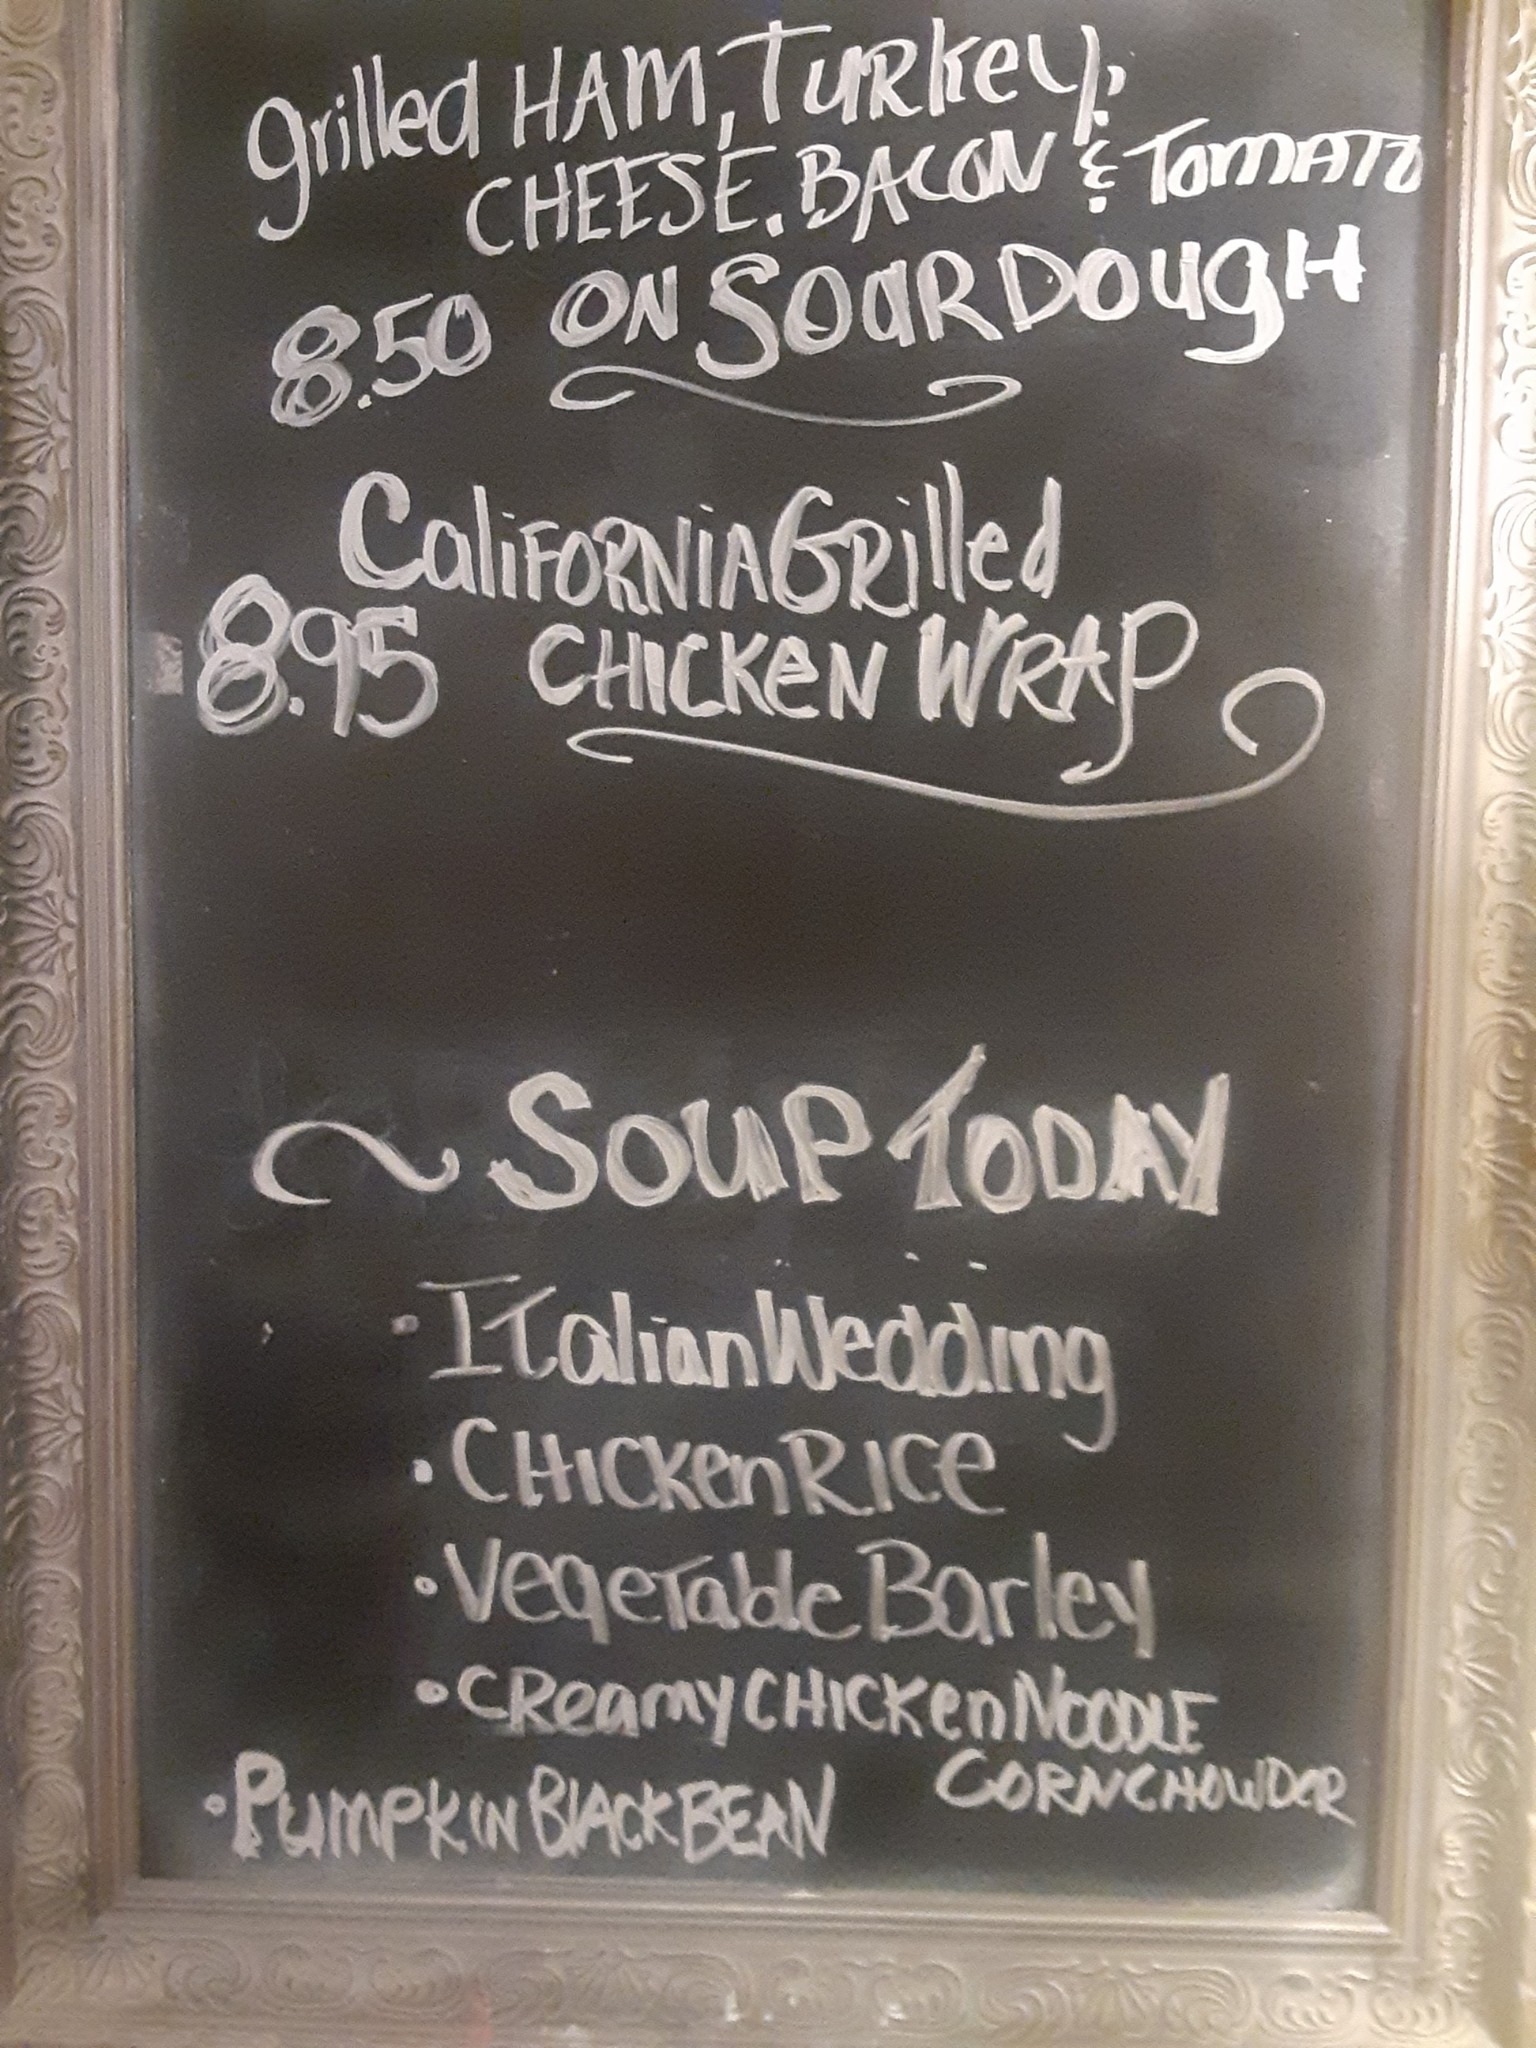 grilled HAM, Turkey,
CHEESE. BACON & TOMATO
8.50 ON SOURDOUGH
CaliFORNiA GRilled
8.95 CHICKeN WRAP
~ SOUP TODAY
· ITalian Wedding
· CHICKen RICe
· VegeTable Barley
· CReamy CHICKen NOODLE
· PUMPKIN BlACK BEAN CORN CHOWDER